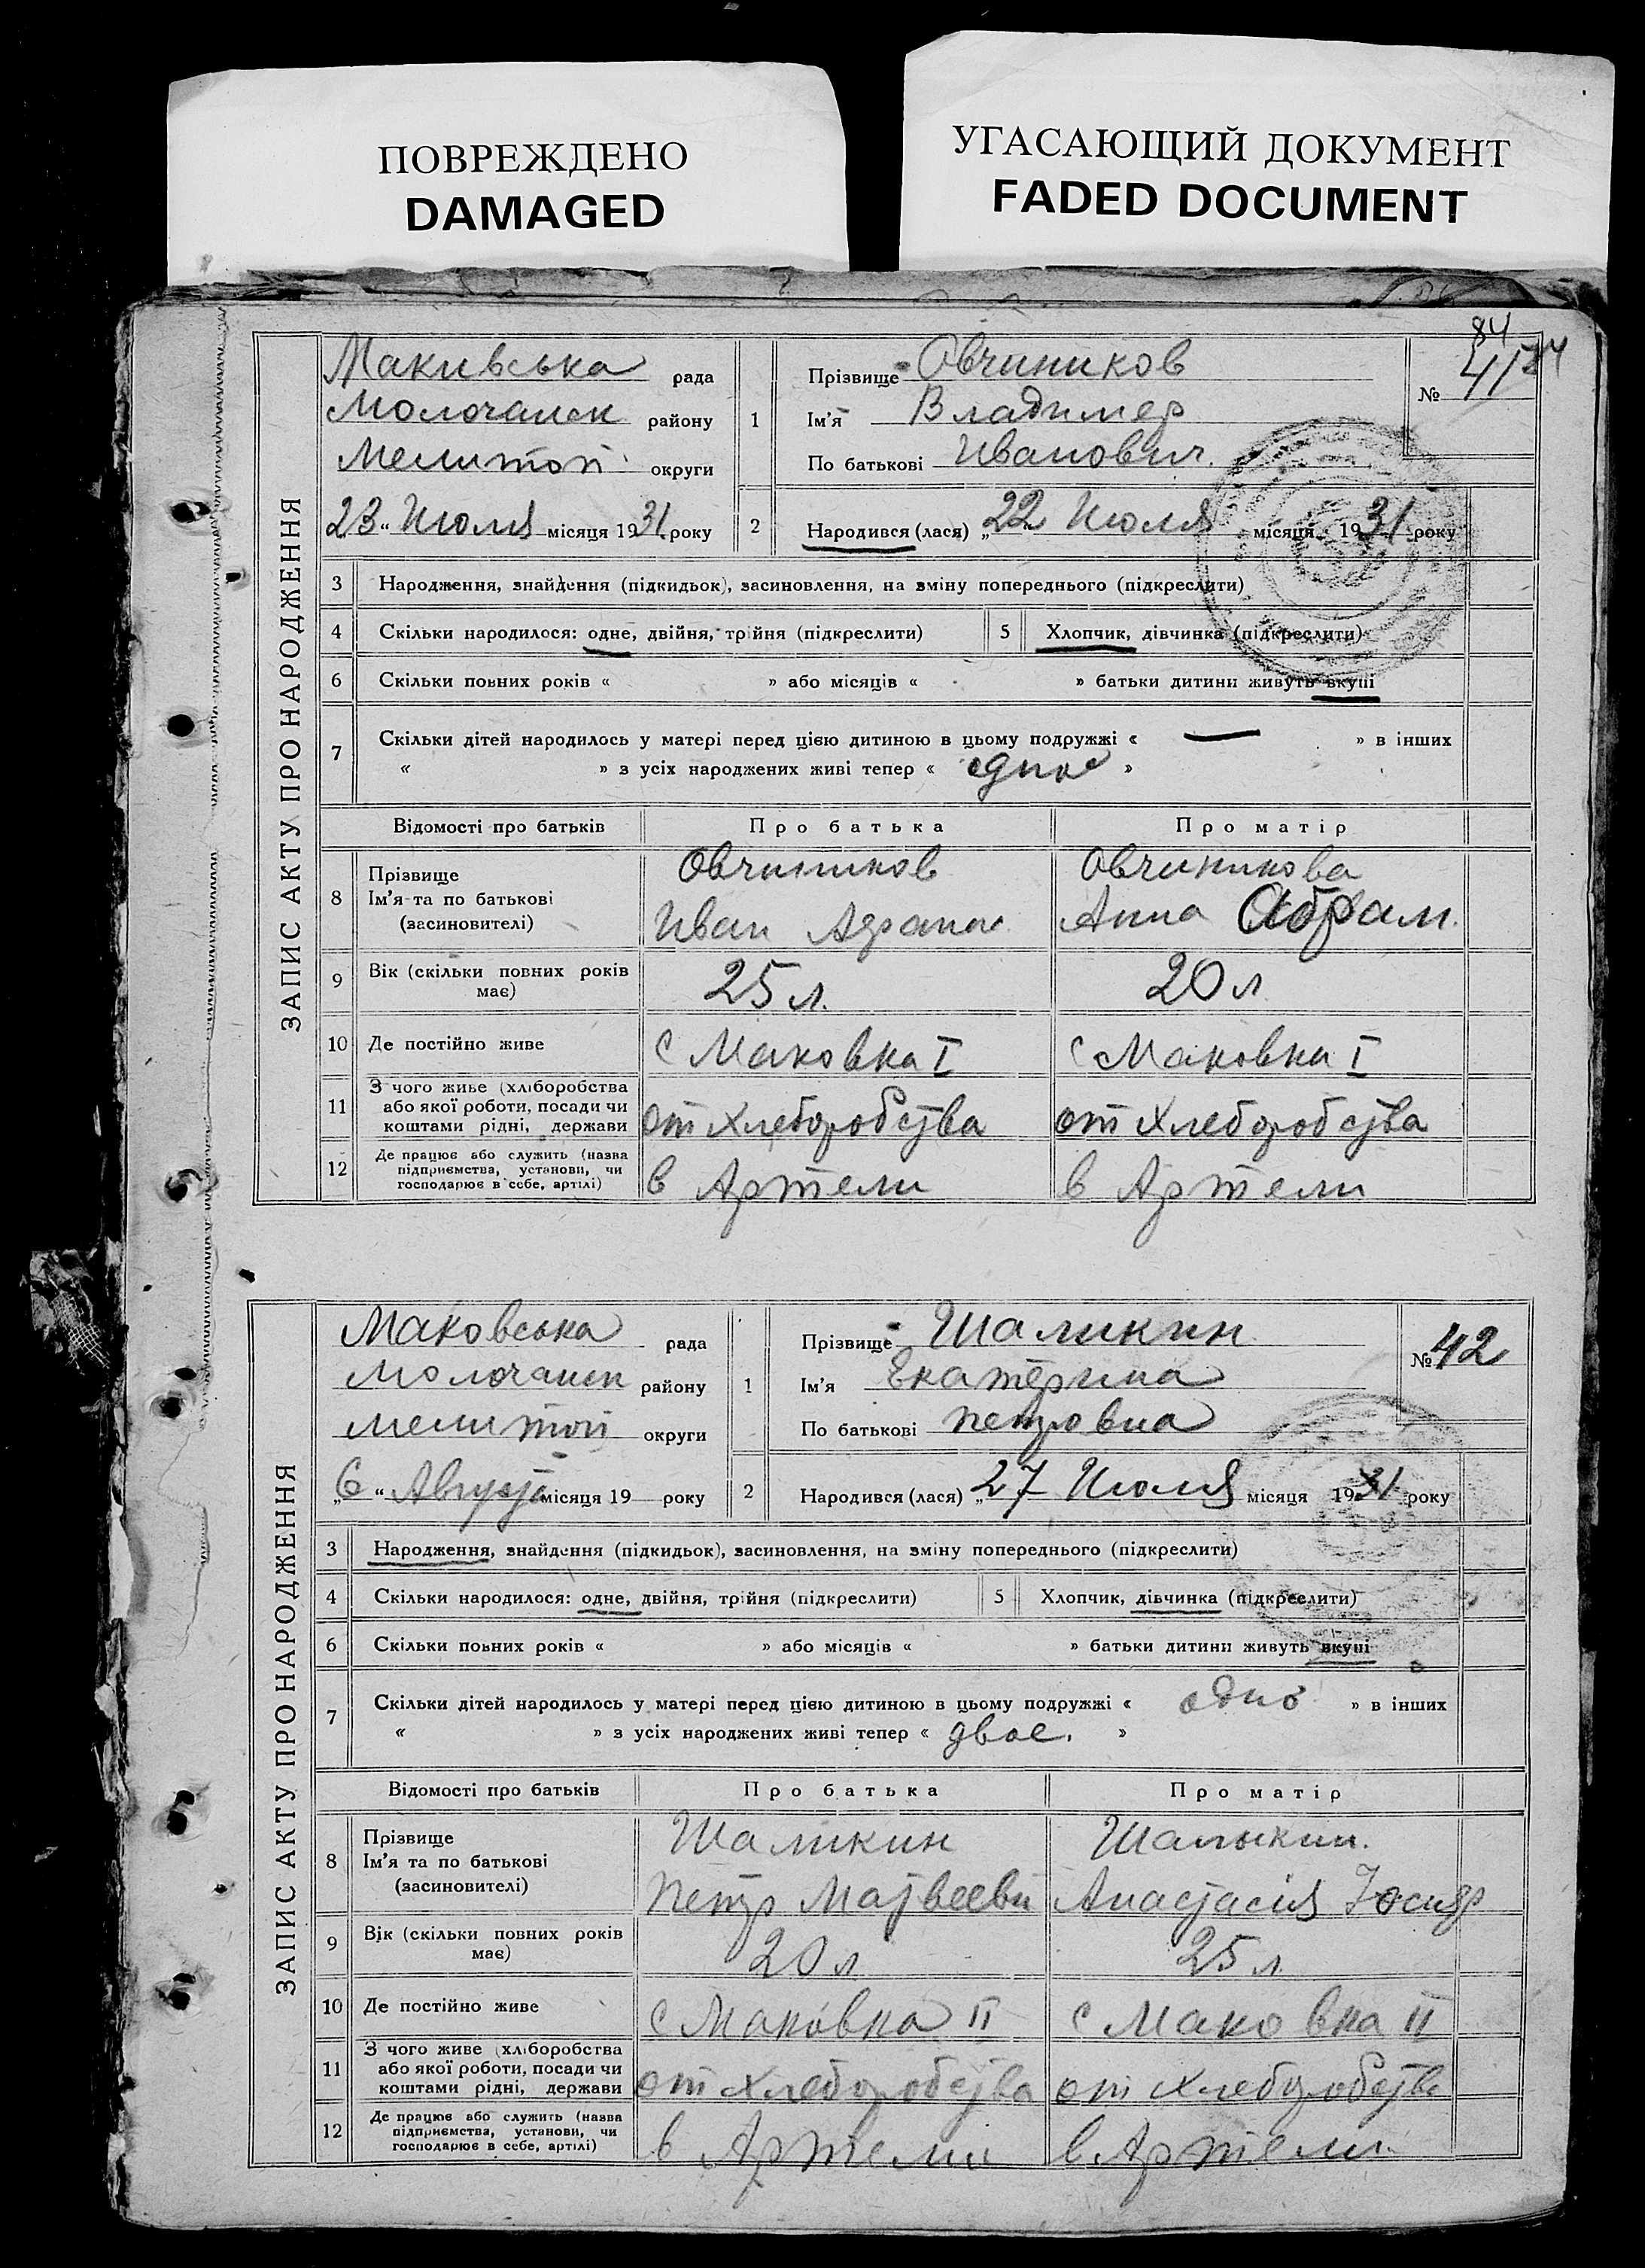 ПОВРЕЖДЕНО
DAMAGED
УГАСАЮЩИЙ ДОКУМЕНТ
FADED DOCUMENT
84
ЗАПИС АКТУ ПРО НАРОДЖЕННЯ
Макивська рада
Молочанск району
Мелитоп округи
23 " Июля місяця 1931 року
1
Прізвище Овчиников
Ім'я Владимер
По батькові Иванович.
№ 41
2
Народився (лася) „22 Июля місяця 1931 року
3 Народження, знайдення (підкидьок), засиновлення, на зміну попереднього (підкреслити)
4 Скільки народилося: одне, двійня, трійня (підкреслити) 5 Хлопчик, дівчинка (підкреслити)
6 Скільки повних років « » або місяців « » батьки дитини живуть вкупі
7 Скільки дітей народилось у матері перед цією дитиною в цьому подружжі « — » в інших
« » з усіх народжених живі тепер « одно »
Відомості про батьків Про батька Про матір
8 Прізвище Ім'я та по батькові (засиновителі)
Овчиников Овчиникова
Иван Анна Абрам.
9 Вік (скільки повних років має) 25 л. 20 л
10 Де постійно живе с Маковка I с Маковка I
11 З чого живе (хліборобства або якої роботи, посади чи коштами рідні, держави от хлеборобства от хлеборобства
12 Де працює або служить (назва підприємства, установи, чи господарює в себе, артілі) в Артели в Артели
ЗАПИС АКТУ ПРО НАРОДЖЕННЯ
Маковська рада
Молочанск району
мелитоп округи
„6 " Августа місяця 19 року
1
Прізвище Шаликин
Ім'я Екатерина
По батькові петровна
№ 42
2
Народився (лася) „27 Июля місяця 1931 року
3 Народження, знайдення (підкидьок), засиновлення, на зміну попереднього (підкреслити)
4 Скільки народилося: одне, двійня, трійня (підкреслити) 5 Хлопчик, дівчинка (підкреслити)
6 Скільки повних років « » або місяців « » батьки дитини живуть вкупі
7 Скільки дітей народилось у матері перед цією дитиною в цьому подружжі « одно » в інших
« » з усіх народжених живі тепер « двое. »
Відомості про батьків Про батька Про матір
8 Прізвище Ім'я та по батькові (засиновителі)
Шаликин Шалыкин.
Петр Матвееви Анастасія
9 Вік (скільки повних років має) 20 л 25 л
10 Де постійно живе с Маковка II с Маковка II
11 З чого живе (хліборобства або якої роботи, посади чи коштами рідні, держави от хлеборобства от хлеборобства
12 Де працює або служить (назва підприємства, установи, чи господарює в себе, артілі) в Артели в Артели